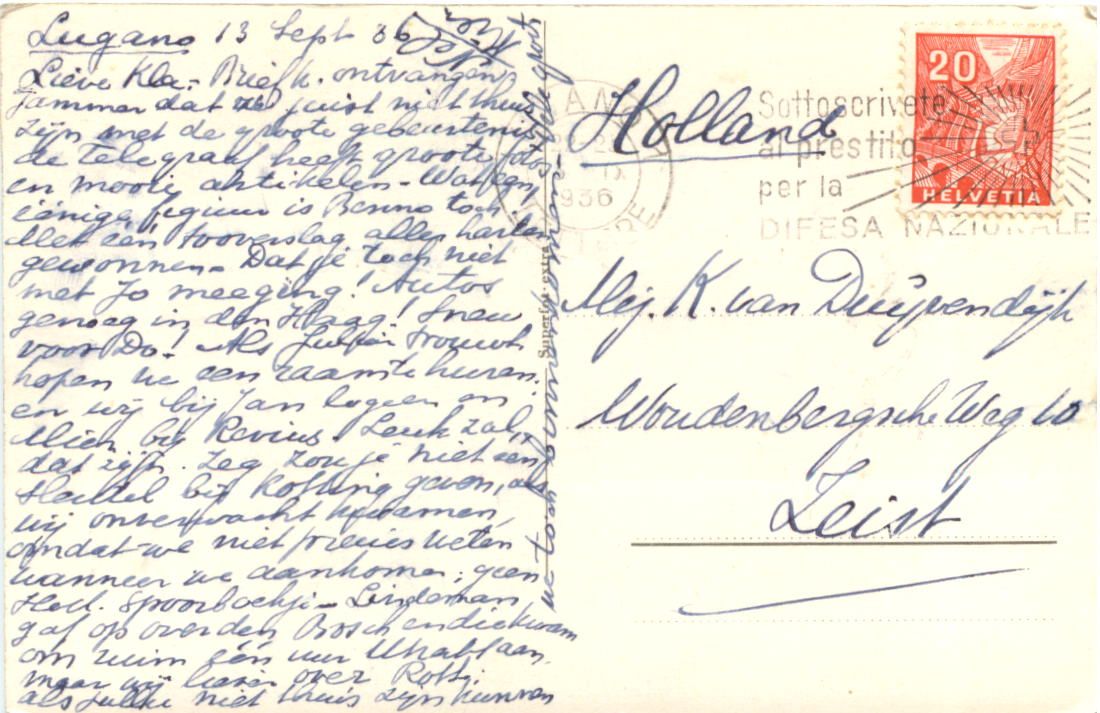 Lugano 13 Sept 36
Lieve Kla. Brief k. ontvangen,
Jammer dat we juist niet thuis
zijn met de groote gebeurtenis
de telegraaf heeft groote foto's
en mooie artikelen - Wat een
éénige figuur is Benno toch
Met één tooverslag alle harten
gewonnen - Dat je toch niet
met Jo meeging! Autos
genoeg in den Haag! Sneu
voor Do! Als Julia trouwt
hopen we een raam te huren.
en wij bij Jan logeeren en
Mien bij Revius. Leuk zal
dat zijn. Zeg zou je niet een
sleutel bij Rotting geven, als
wij onverwacht kwamen,
omdat we niet precies weten
wanneer we aankomen; geen
Holl. Spoorboekje - Lindeman
gaf op over den Bosch en die kwam
om ruim één uur aan,
maar wij liever over Rott.
als jullie niet thuis zijn kunnen
we toch
Superfot-extra
Holland
LUGANO
IX
1936
Sottoscrivete
al prestito
per la
DIFESA NAZIONALE
20
HELVETIA
Mej. K. van Duijvendijk
Woudenbergsche Weg 10
Zeist